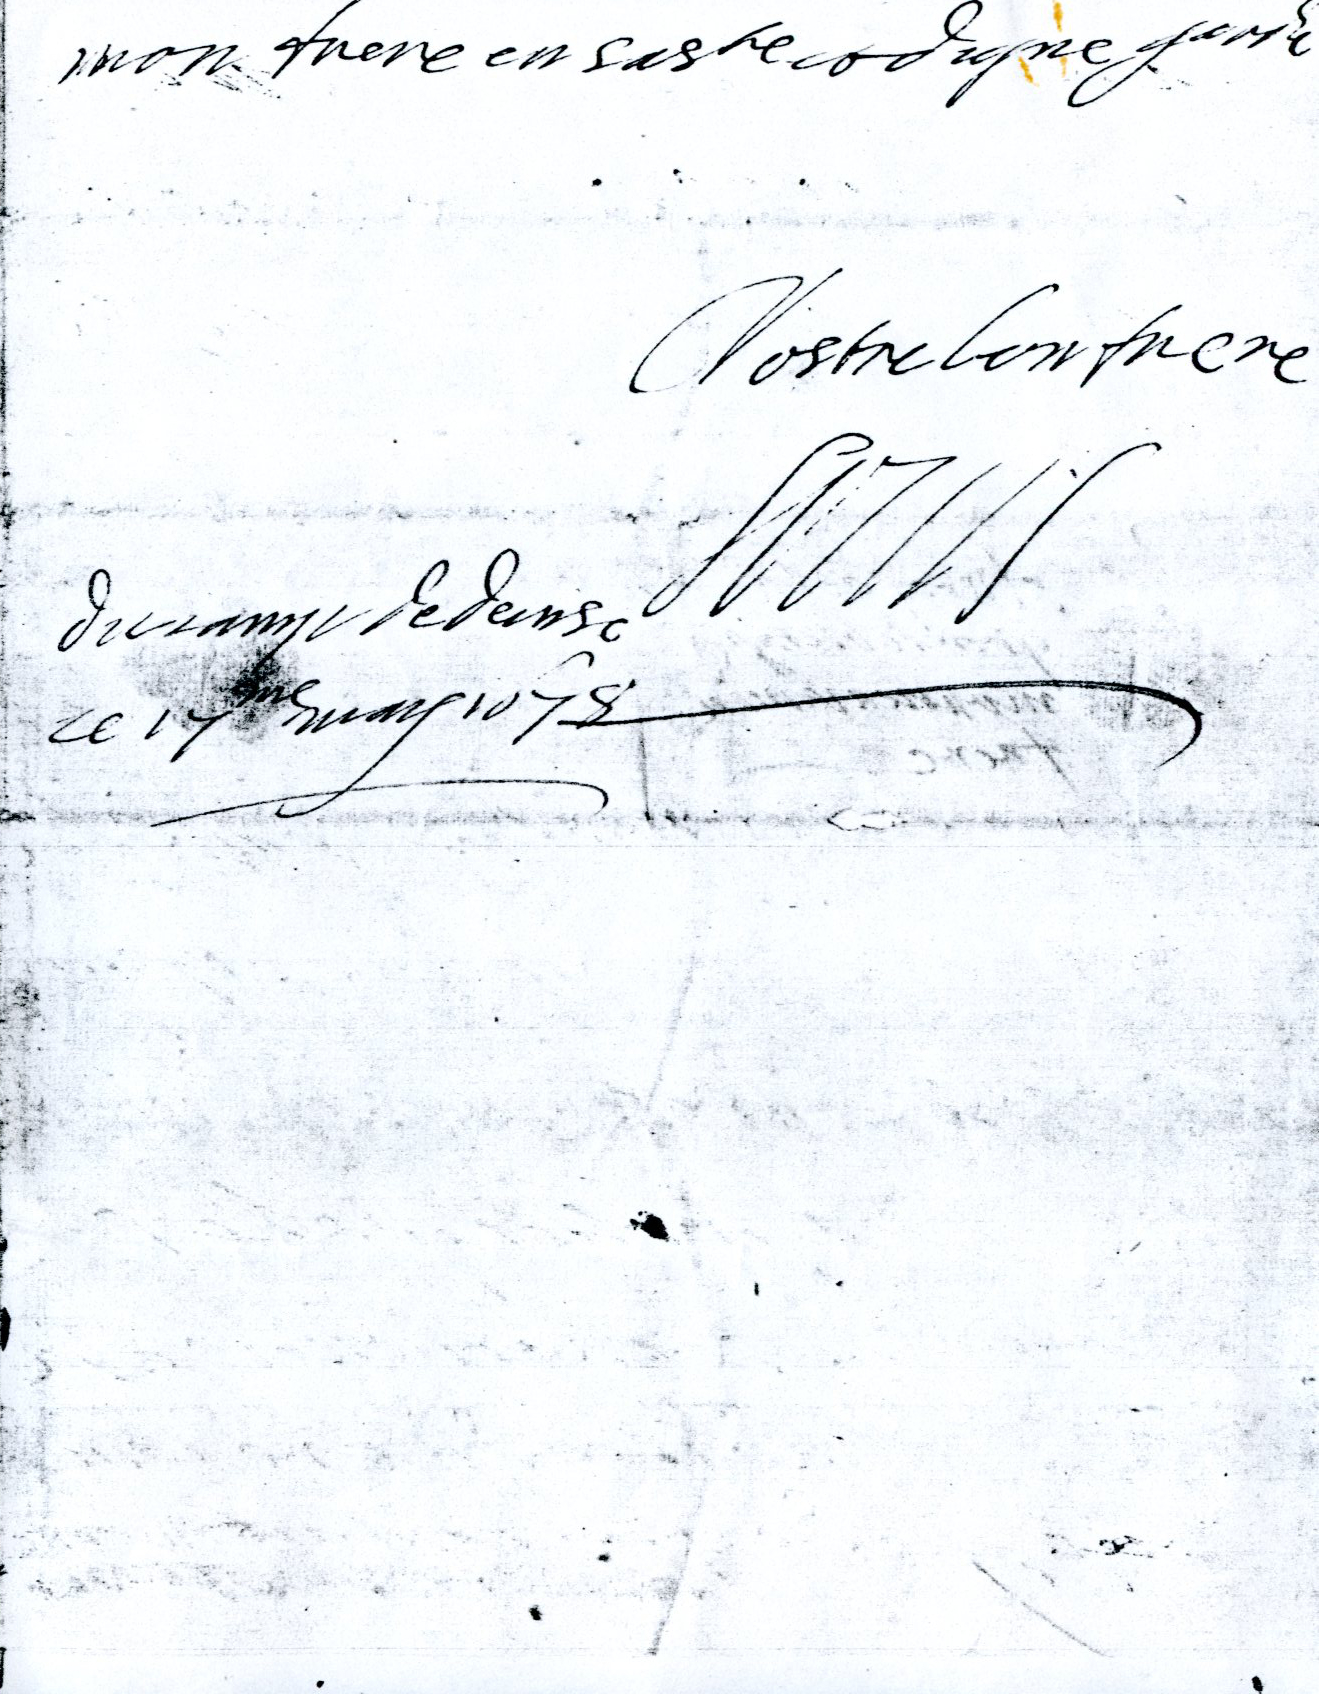 mon frere en sa ste et digne garde
Vostre bon frere
LOUIS
du camp de deinse
ce 17me may 1678